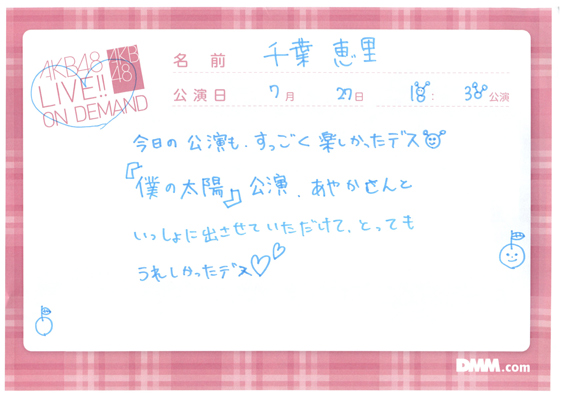 AKB48
LIVE!!
ON DEMAND
AKB
48
名前 千葉 恵里
公演日 7月 27日 18:30公演
今日の公演も、すっごく楽しかったデス
『僕の太陽』公演、あやかさんと
いっしょに出させていただけて、とっても
うれしかったデス♡♡
DMM.com